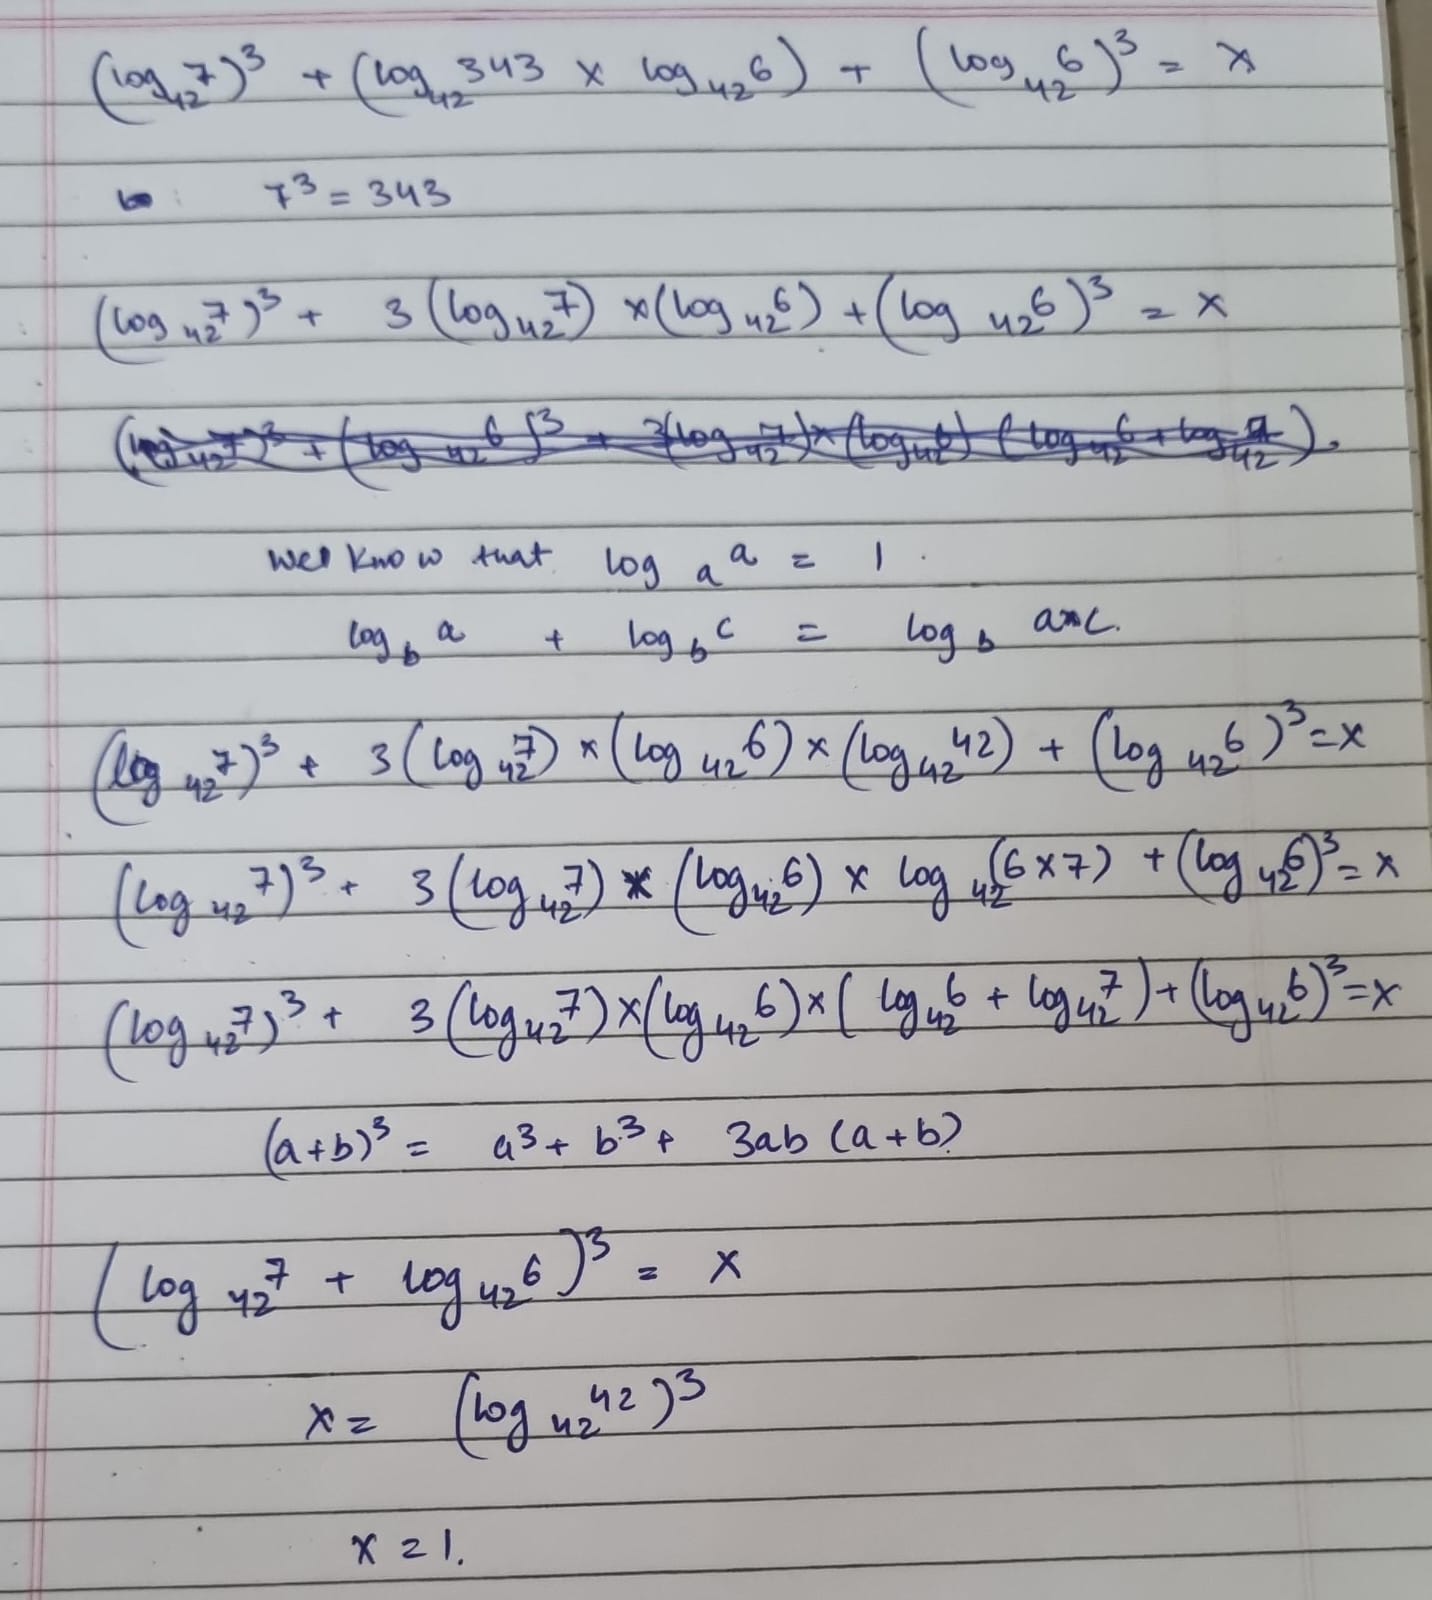 (log₄₂7)³ + (log₄₂343 × log₄₂6) + (log₄₂6)³ = x
7³ = 343
(log₄₂7)³ + 3(log₄₂7) × (log₄₂6) + (log₄₂6)³ = x
(log₄₂7)³ + (log₄₂6)³ + 3(log₄₂7) × (log₄₂6) (log₄₂6 + log₄₂7).
We know that logₐa = 1.
log_b a + log_b c = log_b a×c.
(log₄₂7)³ + 3(log₄₂7) × (log₄₂6) × (log₄₂42) + (log₄₂6)³ = x
(log₄₂7)³ + 3(log₄₂7) × (log₄₂6) × log₄₂(6×7) + (log₄₂6)³ = x
(log₄₂7)³ + 3(log₄₂7) × (log₄₂6) × (log₄₂6 + log₄₂7) + (log₄₂6)³ = x
(a+b)³ = a³ + b³ + 3ab (a+b)
(log₄₂7 + log₄₂6)³ = x
x = (log₄₂42)³
x = 1.